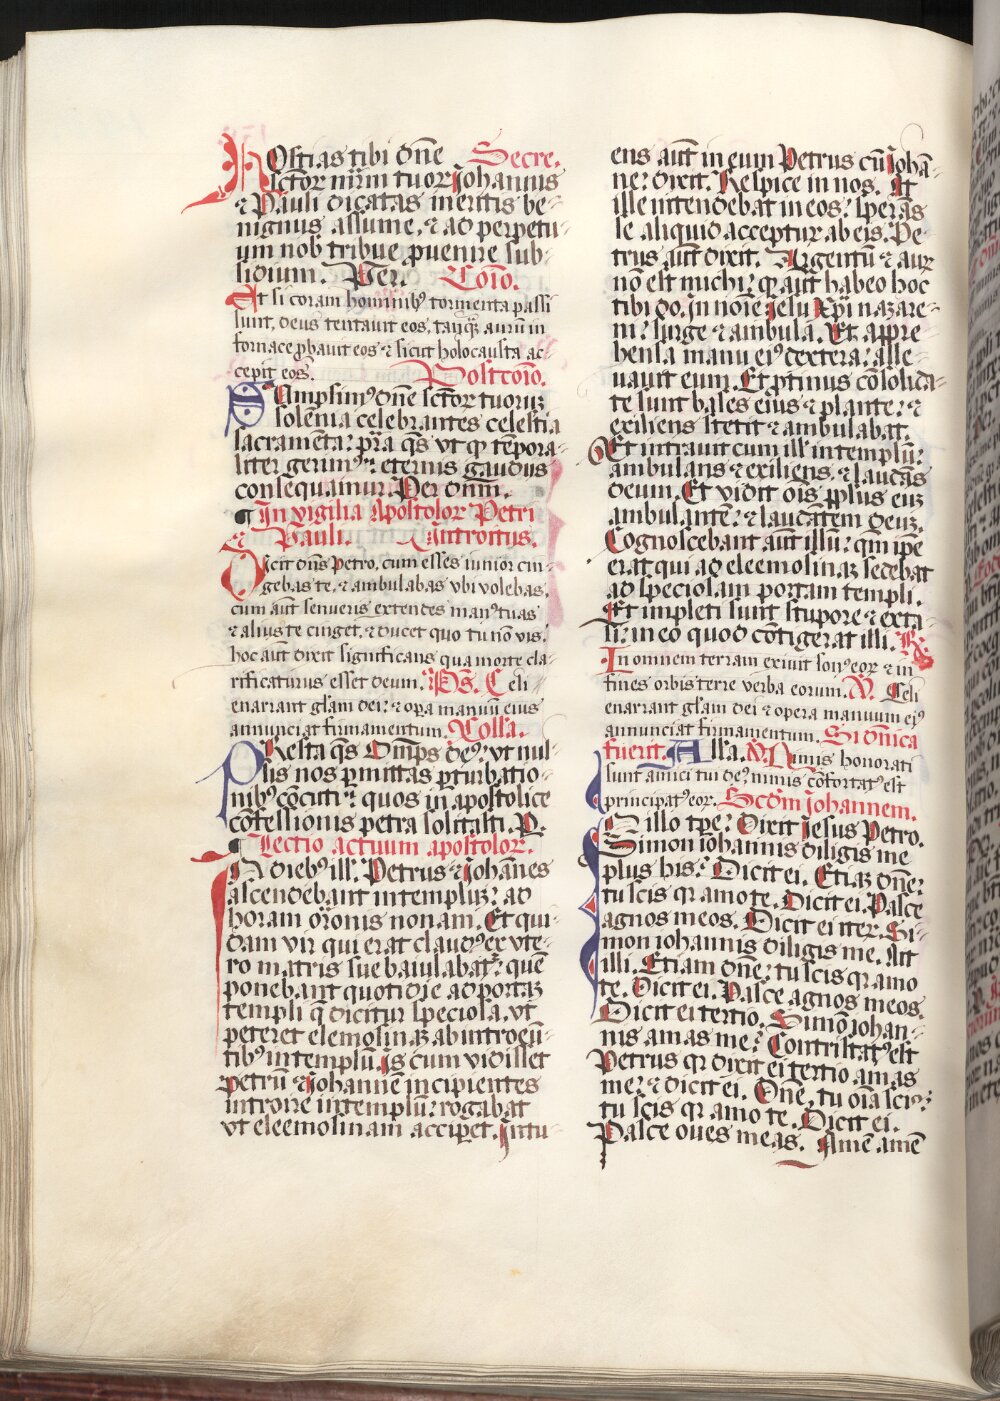 Hostias tibi dn̄e Secre.
sctōꝝ mr̄im tuoꝝ Johannis
⁊ Pauli dicatas meritis be-
nignus assume, ⁊ ad perpetu-
um nob tribue ꝓuenire sub-
sidium. Per. Cōio.
Et si coram hominibꝰ tormenta passi
sunt, deus tentauit eos, tanꝙ̄ aurū in
fornace ꝓbauit eos ⁊ sicut holocausta ac-
cepit eos. Postcōio.
SAmpsimꝰ dn̄e sctōꝝ tuoꝝ
solēnia celebrantes celestia
sacramēta: p̄ra qs̄ vt qȝ tēpora-
liter gerimꝰ: eternis gaudiis
consequamur. Per dnm̄.
¶ In vigilia Apostoloꝝ Petri
⁊ Pauli. Introitus.
Dicit dn̄s Petro, cum esses iunior cin-
gebas te, ⁊ ambulabas vbi volebas,
cum aūt senueris extendes manꝰ tuas
⁊ alius te cinget, ⁊ ducet quo tu nō vis.
hoc aūt dixit significans qua morte cla-
rificaturus esset deum. Ps. Celi
enarrant glām dei: ⁊ oꝑa manuū eius
annunciat firmamentum. Collā.
PResta qs̄ Om̄ps deꝰ: vt nul-
lis nos ꝑmittas ꝑturbatio-
nibꝰ cōcuti: quos in apostolice
cōfessionis petra solidasti. P.
¶ Lectio actuum apostoloꝝ.
IN diebꝰ ill'. Petrus ⁊ Johānes
ascendebant in templuꝫ: ad
horam orōnis nonam. Et qui-
dam vir qui erat claudꝰ ex vte-
ro matris sue baiulabat: quē
ponebant quotidie ad portaꝫ
templi q̄ dicitur speciosa, vt
peteret elemosinaꝫ ab introeū-
tibꝰ in templū. Is cum vidisset
Petrū ⁊ Johannē incipientes
introire in templū: rogabat
vt eleemosinam acciperet. Intu-
ens aūt in eum Petrus cū Johā-
ne: dixit. Respice in nos. At
ille intendebat in eos: sperās
se aliquid acceptuꝝ ab eis. Pe-
trus aūt dixit. Argentū ⁊ auꝝ
nō est michi: qꝫ aūt habeo hoc
tibi do. In noīe Jesu Xp̄i nazare-
ni: surge ⁊ ambula. Et appre
hensa manu eiꝰ dextera: alle-
uauit eum. Et ꝓtinus cōsolida-
te sunt bases eius ⁊ plante: ⁊
exiliens stetit ⁊ ambulabat.
Et intrauit cum ill' in templū:
ambulans ⁊ exiliens, ⁊ laudās
deum. Et vidit ois̄ pplus euꝫ
ambulantē: ⁊ laudātem deuꝫ.
Cognoscebant aūt illū: qm̄ ipē
erat qui ad eleemosinaꝫ sedebat
ad speciosam portam templi.
Et impleti sunt stupore ⁊ exta-
si: in eo quod cōtigerat illi. R.
In omnem terram exiuit sonꝰ eoꝝ ⁊ in
fines orbis terre verba eorum. V. Celi
enarrant glām dei ⁊ opera manuum eiꝰ
annunciat firmamentum. Si dn̄ica
fuerit. Alla. V. Nimis honorati
sunt amici tui deꝰ, nimis cōfortatꝰ est
principatꝰ eoꝝ. Scdm̄ Johannem.
IN illo tpē: Dixit Jesus Petro.
Simon iohannis diligis me
plus his: Dicit ei. Etiaꝫ dn̄e:
tu scis qꝛ amo te. Dicit ei. Pasce
agnos meos. Dicit ei iteꝝ. Si-
mon iohannis diligis me. Ait
illi. Etiam dn̄e: tu scis qꝛ amo
te. Dicit ei. Pasce agnos meos.
Dicit ei tertio. Simō iohan-
nis amas me: Contristatꝰ est
Petrus qꝛ dixit ei tertio amas
me: ⁊ dicit ei. Dn̄e, tu oīa scis:
tu scis qꝛ amo te. Dicit ei.
Pasce oues meas. Amē amē